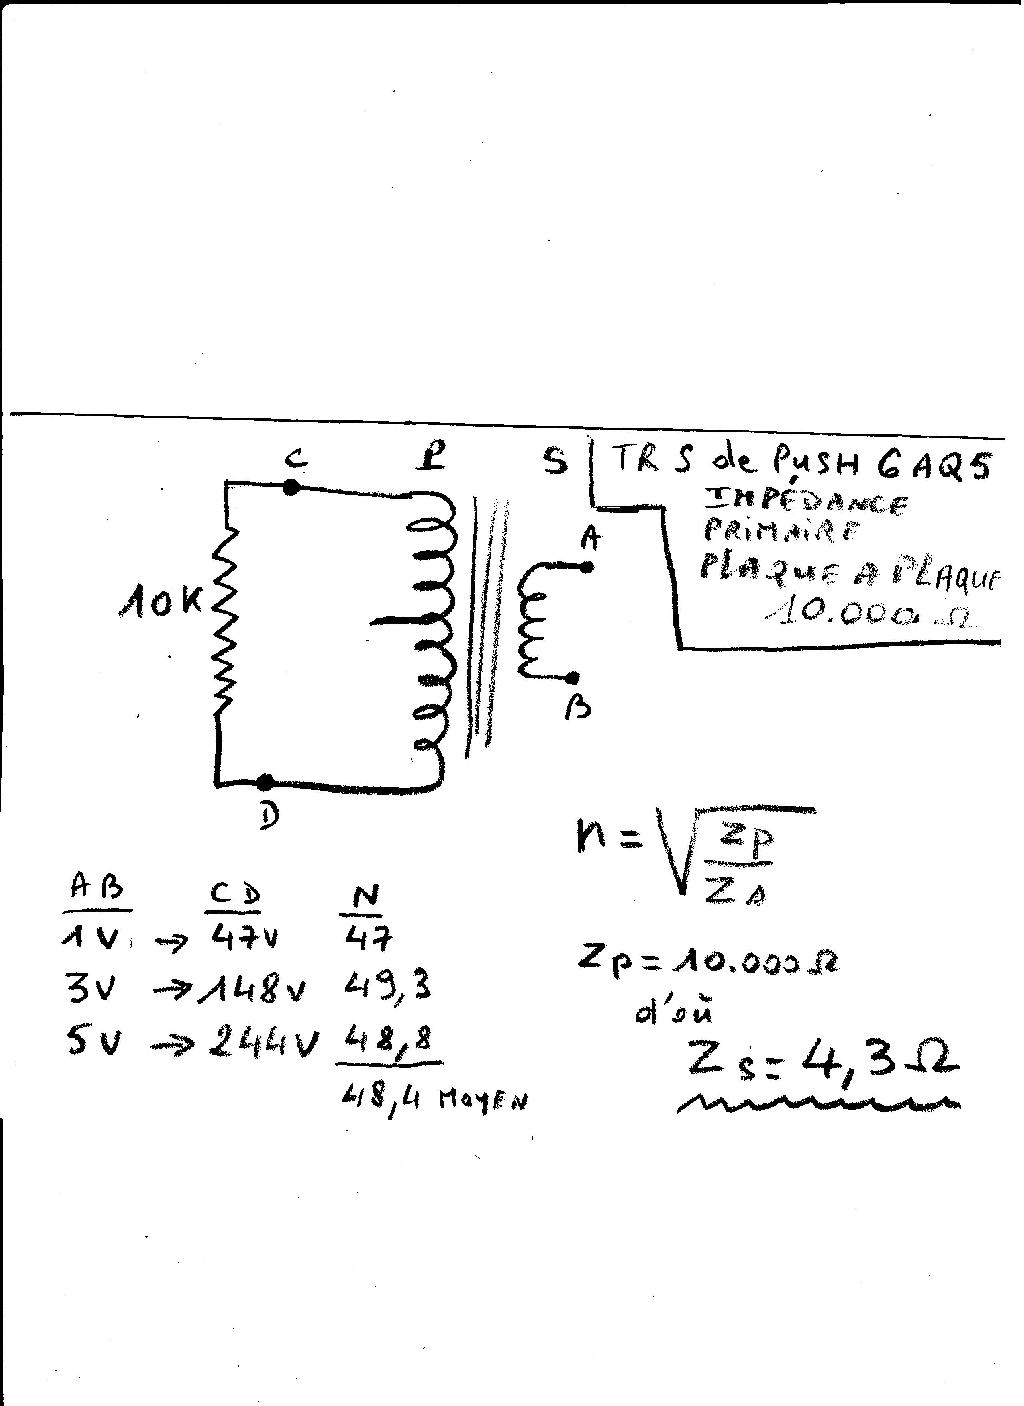 C P S TRS de PUSH 6AQ5
IMPÉDANCE
PRIMAIRE
PLAQUE A PLAQUE
10.000 Ω
A
10K
B
D
n = √ Zp
Zs
AB CD N
1V → 47V 47
3V → 148V 49,3
5V → 244V 48,8
48,4 MOYEN
Zp = 10.000 Ω
d'où
Zs = 4,3 Ω